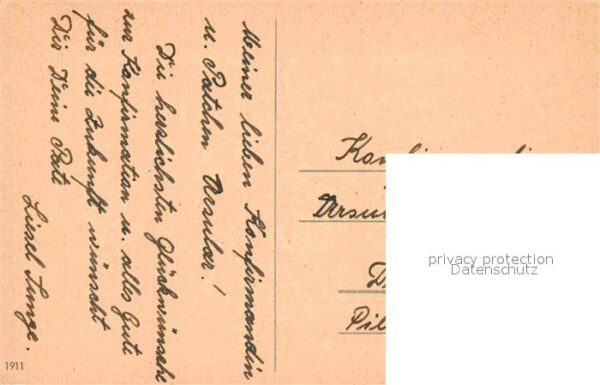 Meiner lieben Konfirmandin
u. Patchen Ursular!
Die herzlichsten Glückwünsche
zur Konfirmation u. alles Gute
für die Zukunft wünscht
Dir Deine Pate
Liesel Junge.
1911
Ursu
Pil
privacy protection
Datenschutz